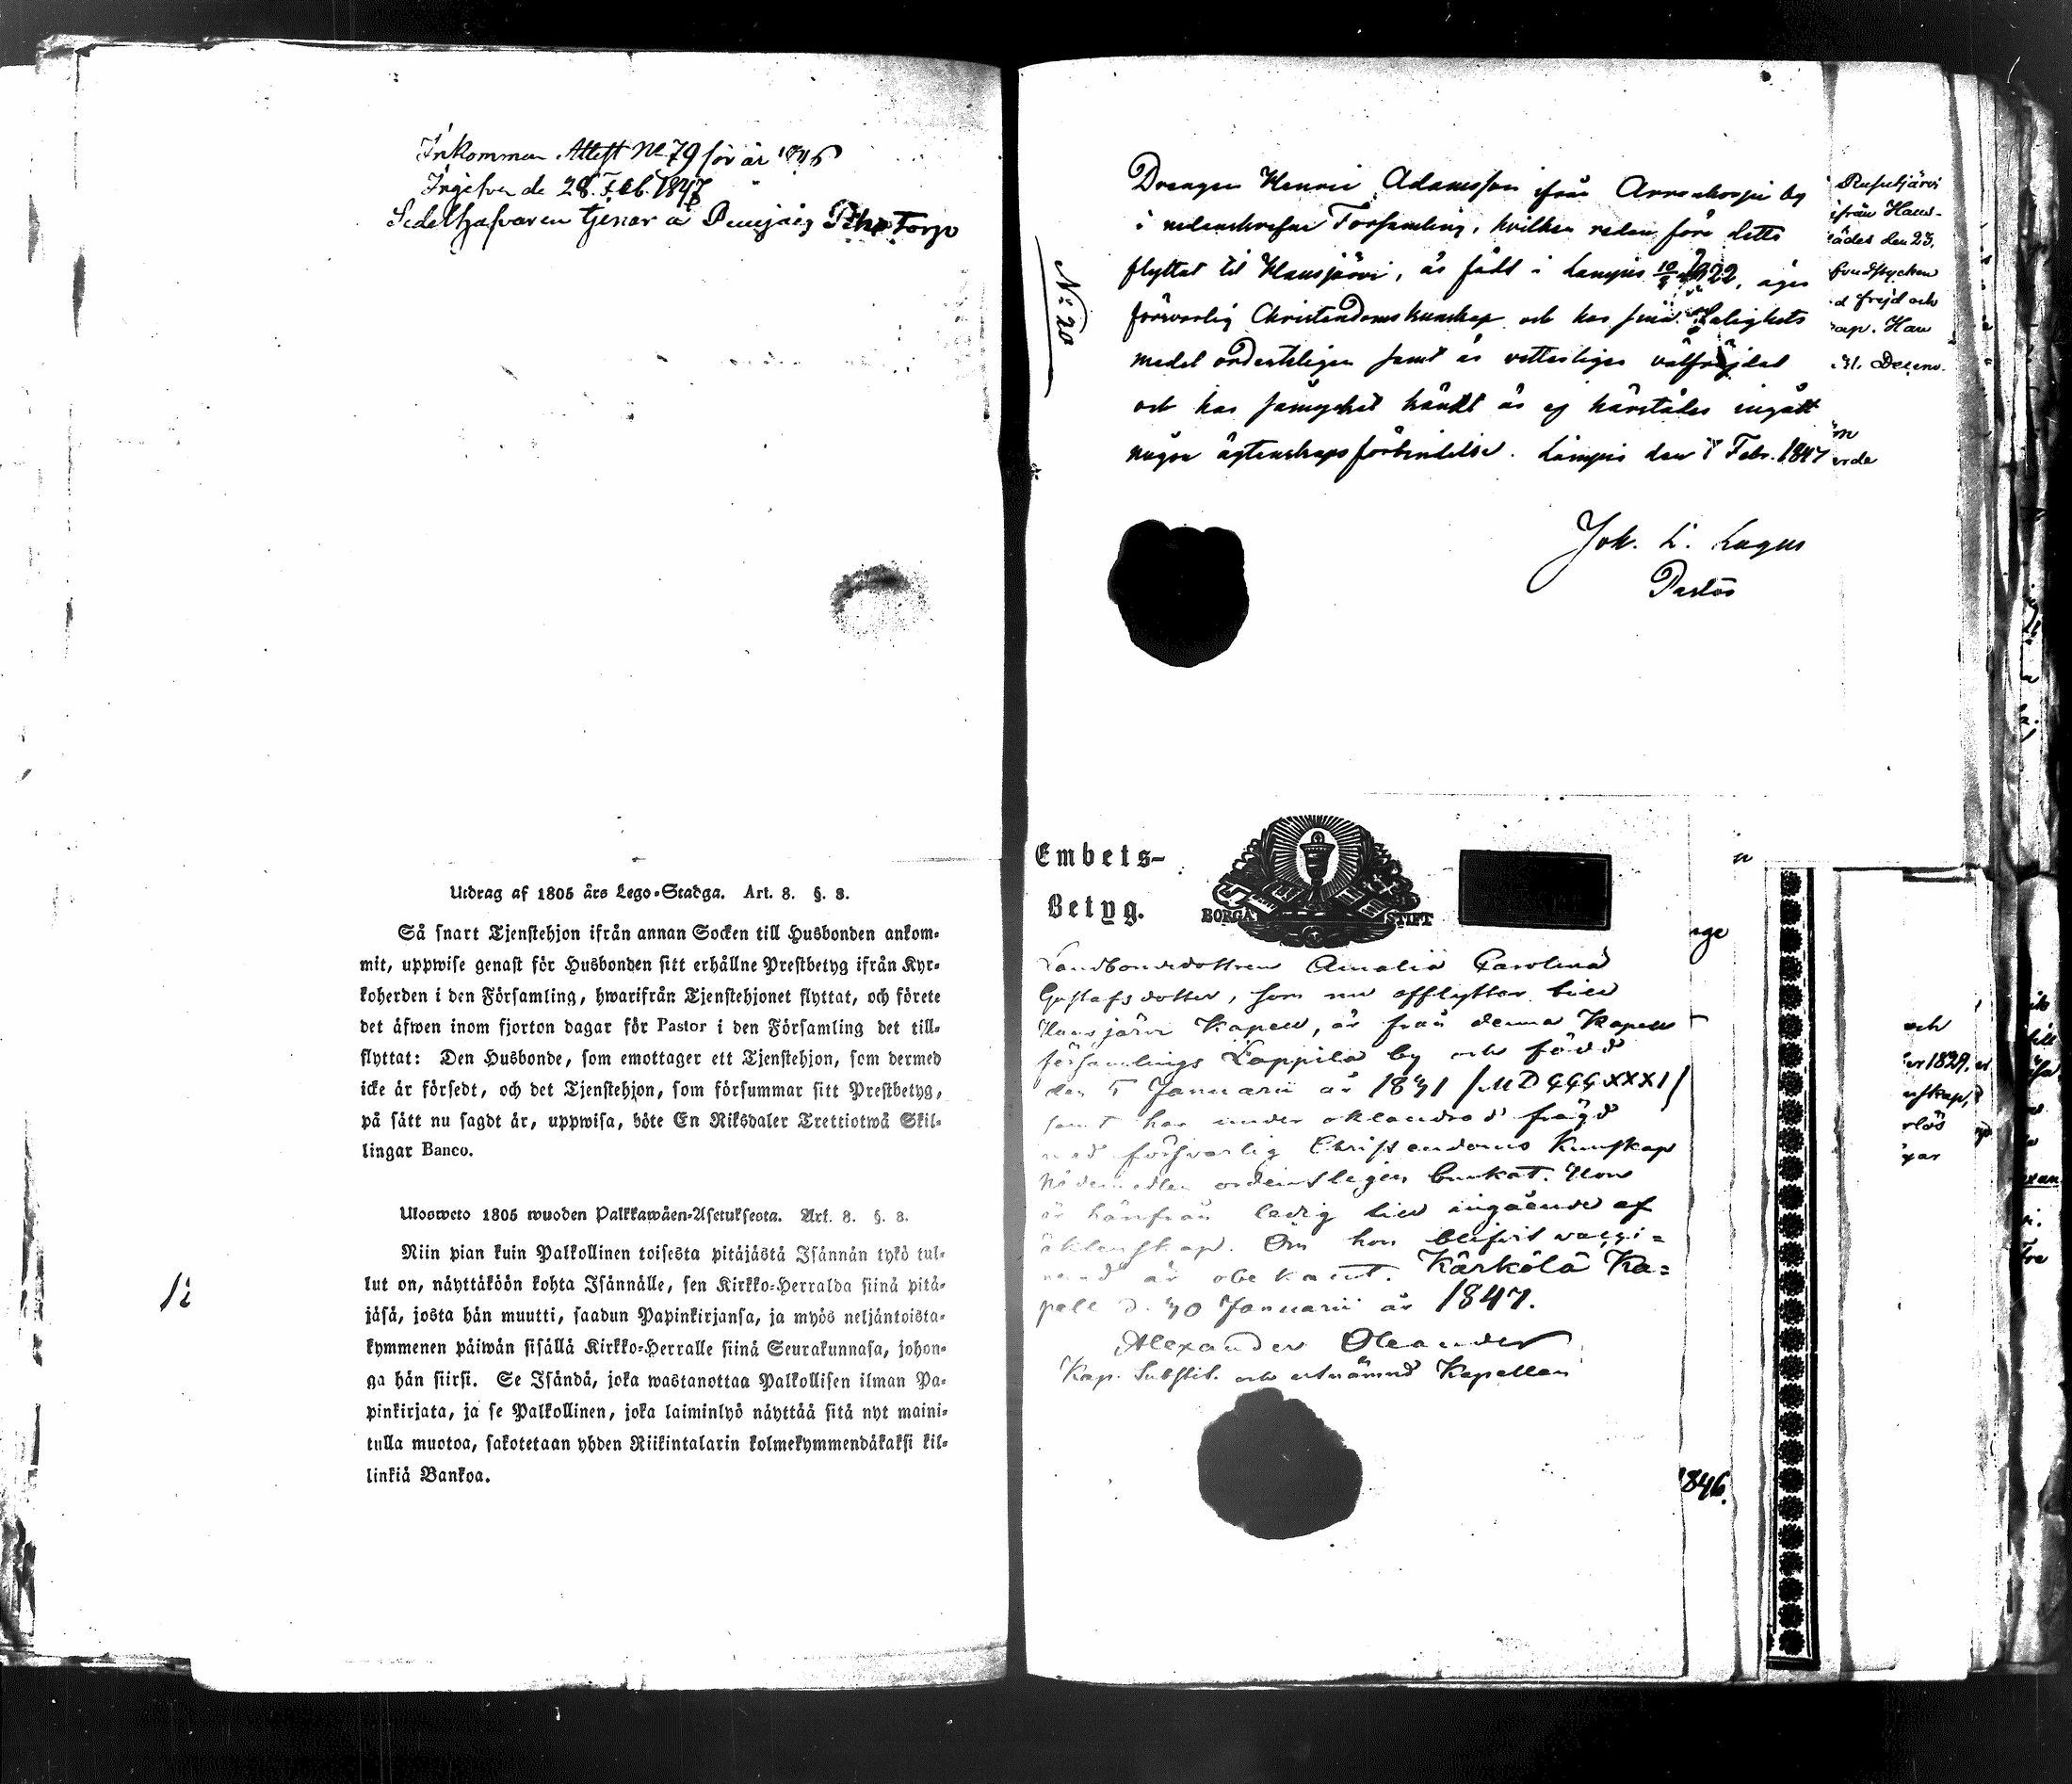 Inkommen Attest No 79 för år 1846
Ingifven de 28. Feb. 1847
Sedelhafvaren tjenar a Torp
Utdrag af 1805 års Lego-Stadga. Art. 8. §. 8.
Så snart Tjenstehjon ifrån annan Socken till Husbonden ankom-
mit, uppwise genast för Husbonden sitt erhållne Prestbetyg ifrån Kyr-
koherden i den Församling, hwarifrån Tjenstehjonet flyttat, och förete
det äfwen inom fjorton dagar för Pastor i den Församling det till-
flyttat: Den Husbonde, som emottager ett Tjenstehjon, som dermed
icke är försedt, och det Tjenstehjon, som försummar sitt Prestbetyg,
på sätt nu sagdt är, uppwisa, böte En Riksdaler Trettiotwå Skil-
lingar Banco.
Ulosweto 1805 wuoden Palkkawäen-Asetuksesta. Art. 8. §. 8.
Niin pian kuin Palkollinen toisesta pitäjästä Isännän tykö tul-
lut on, näyttäköön kohta Isännälle, sen Kirkko-Herralda siinä pitä-
jäsä, josta hän muutti, saadun Papinkirjansa, ja myös neljäntoista-
kymmenen päiwän sisällä Kirkko-Herralle siinä Seurakunnasa, johon-
ga hän siirsi. Se Isändä, joka wastanottaa Palkollisen ilman Pa-
pinkirjata, ja se Palkollinen, joka laiminlyö näyttää sitä nyt maini-
tulla muotoa, sakotetaan yhden Riikintalarin kolmekymmendäkaksi kil-
linkiä Bankoa.
12
No 20
Drengen Henric Adamsson ifrån by
i nedanskrefne Församling, hvilken redan före detta
flyttat til Hausjärvi, är född i Lampis 10/9 1822, äger
försvarlig Christendomskunskap och har sina Salighets
medel ordenteligen samt är vetterligen välfrejdad
och har såmycket kändt är ej härstädes ingått
någon ägtenskapsförbindelse. Lampis den Febr. 1847
Joh. L. Lagus
Pastor
ifrån Haus-
den 23,
d frejd och
kap. Han
31. Decem.
Embets-
Betyg.
BORGÅ STIFT
Landbondedottren Amalia Carolina
Gustafsdotter, som nu afflyttar till
Hausjärvi Kapell, är från denna Kapell
församlings Lappila by och född
den 5 Januarii år 1831 /MDCCCXXXI/
samt har under oklandrad frägd
med försvarlig Christendoms Kunskap
Nådemedlen ordentligen bruk at. Hon
är härifrån ledig till ingående af
äktenskap. Om hon blifvit vacci-
nerad är obekant. Kärkölä Ka-
pell d. 30 Januarii år 1847.
Alexander Oleander
Kap. Substit. och utnämnd Kapellan
1846.
och
1829.